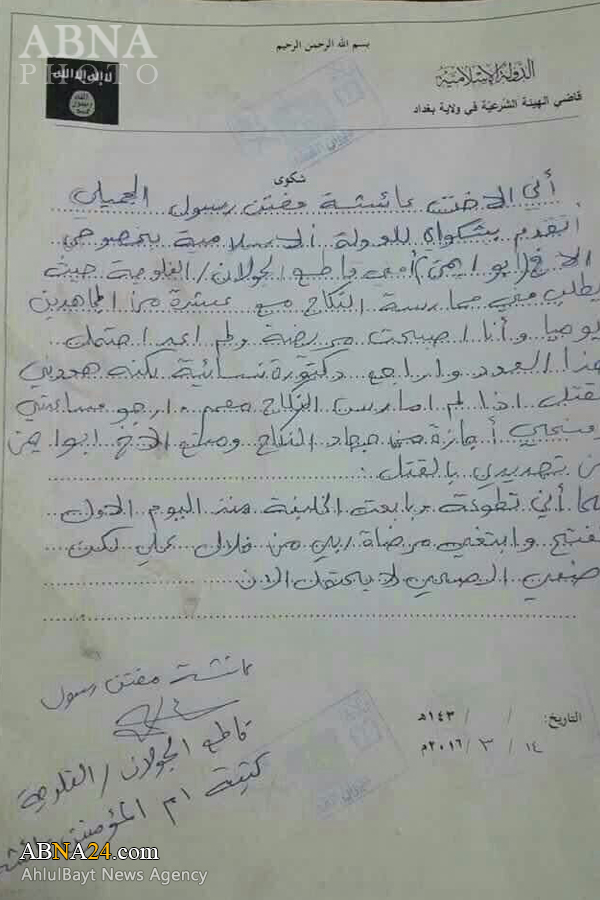 ABNA
PHOTO
بسم الله الرحمن الرحيم
لا إله إلا الله
الله
رسول
محمد
الدولة الإسلامية
قاضي الهيئة الشرعية في ولاية بغداد
شكوى
أني الاخت عائشة مفتن رسول الجميلي
اتقدم بشكواي للدولة الاسلامية بخصوص
الاخ (ابو ايمن) أمير قاطع الجولان / الفلوجة حيث
يطلب مني ممارسة النكاح مع عشرة من المجاهدين
يوميا وأنا اصبحت مريضة ولم اعد احتمل
هذا العدد واراجع دكتورة نسائية لكنه هددني
بقتلي اذا لم امارس النكاح معهم وارجو مساعدتي
ومنحي أجازة من جهاد النكاح ومنع الاخ ابو ايمن
من تهديدي بالقتل
كما أني تطوعت وبايعت الخليفة منذ اليوم الاول
للفتح وابتغي مرضاة ربي من خلال عملي لكن
وضعي الصحي لا يحتمل الان
عائشة مفتن رسول
قاطع الجولان / الفلوجة
كتيبة ام المؤمنين عائشة
التاريخ: / / ١٤٣هـ
١٤ / ٣ / ٢٠١٦م
ABNA24.com
AhlulBayt News Agency